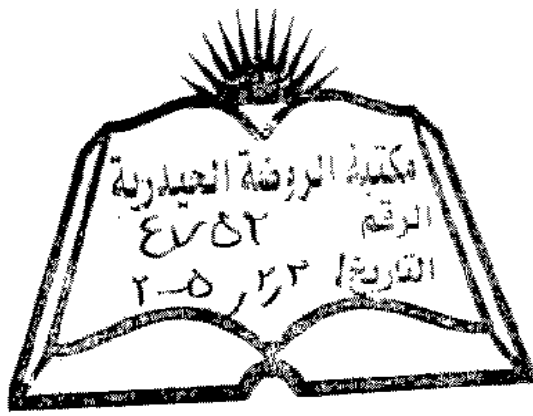 مكتبة الروضة الحيدرية
الرقم ٤٧٥٢
التاريخ/ ٢,٣, ٢٠٠٥